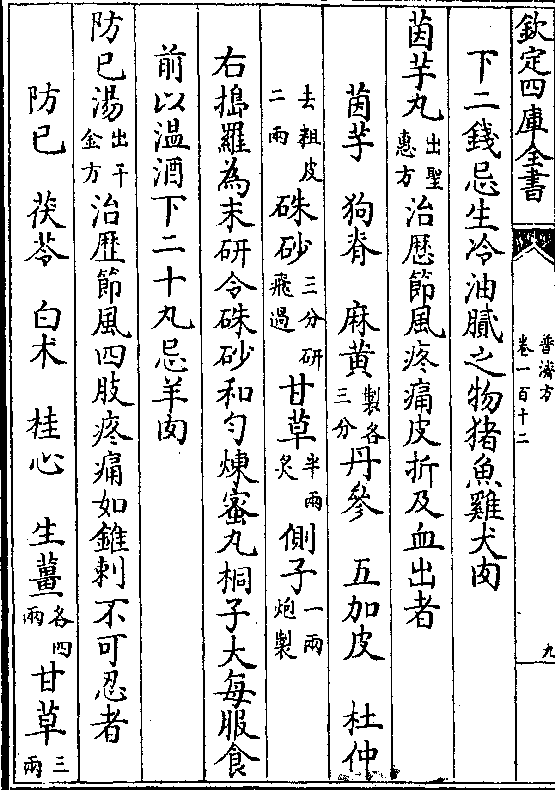 欽定四庫全書
普濟方
卷一百十二
九
下二錢忌生冷油膩之物猪魚雞犬肉
茵芋丸出聖惠方治歴節風疼痛皮折及血出者
茵芋 狗脊 麻黄製各三分丹參 五加皮 杜仲
去粗皮二兩硃砂三分研飛過甘草半兩炙側子一兩炮製
右搗羅為末研令硃砂和匀煉蜜丸桐子大每服食
前以温酒下二十丸忌羊肉
防已湯出千金方治歴節風四肢疼痛如錐刺不可忍者
防已 茯苓 白术 桂心 生薑各四兩甘草三兩